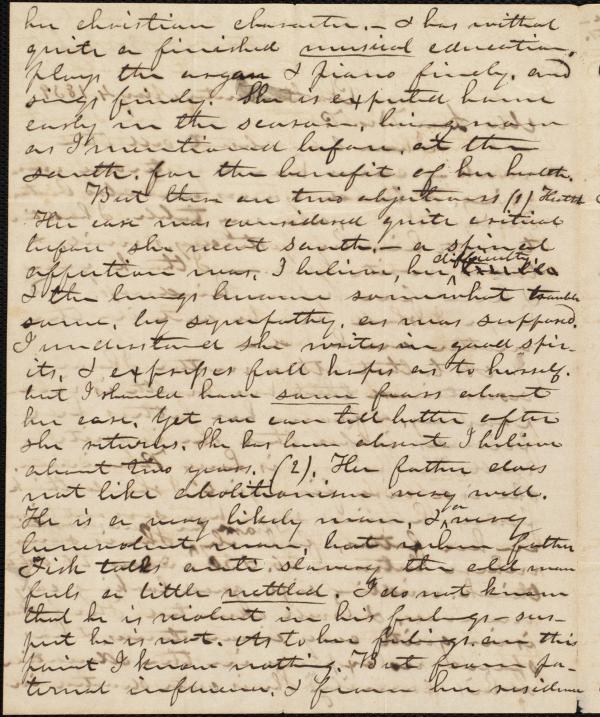 her christian character, – & has withal
quite a finished musical education,
plays the organ & piano finely, and
sings finely. She is expected home
early in the season, being now
as I mentioned before, at the
south, for the benefit of her health.
But there are two objections (1) Health
Her case was considered quite critical
before she went south, – a spinal
affection was, I believe, her difficulty
& the lungs became somewhat trouble
some, by sympathy, as was supposed.
I understand she writes in good spir-
its, & expresses full hopes as to herself.
but I should have some fears about
her case. Yet we can tell better after
she returns. She has been absent I believe
about two years. (2). Her father does
not like abolitionism very well.
He is a very likely man, & a very
benevolent man, but when father
Fisk talks anti slavery the old man
feels a little nettled. I do not know
that he is violent in his feelings – sus-
pect he is not. As to her feelings on this
point I know nothing. But from pa-
ternal influence, & from her residence